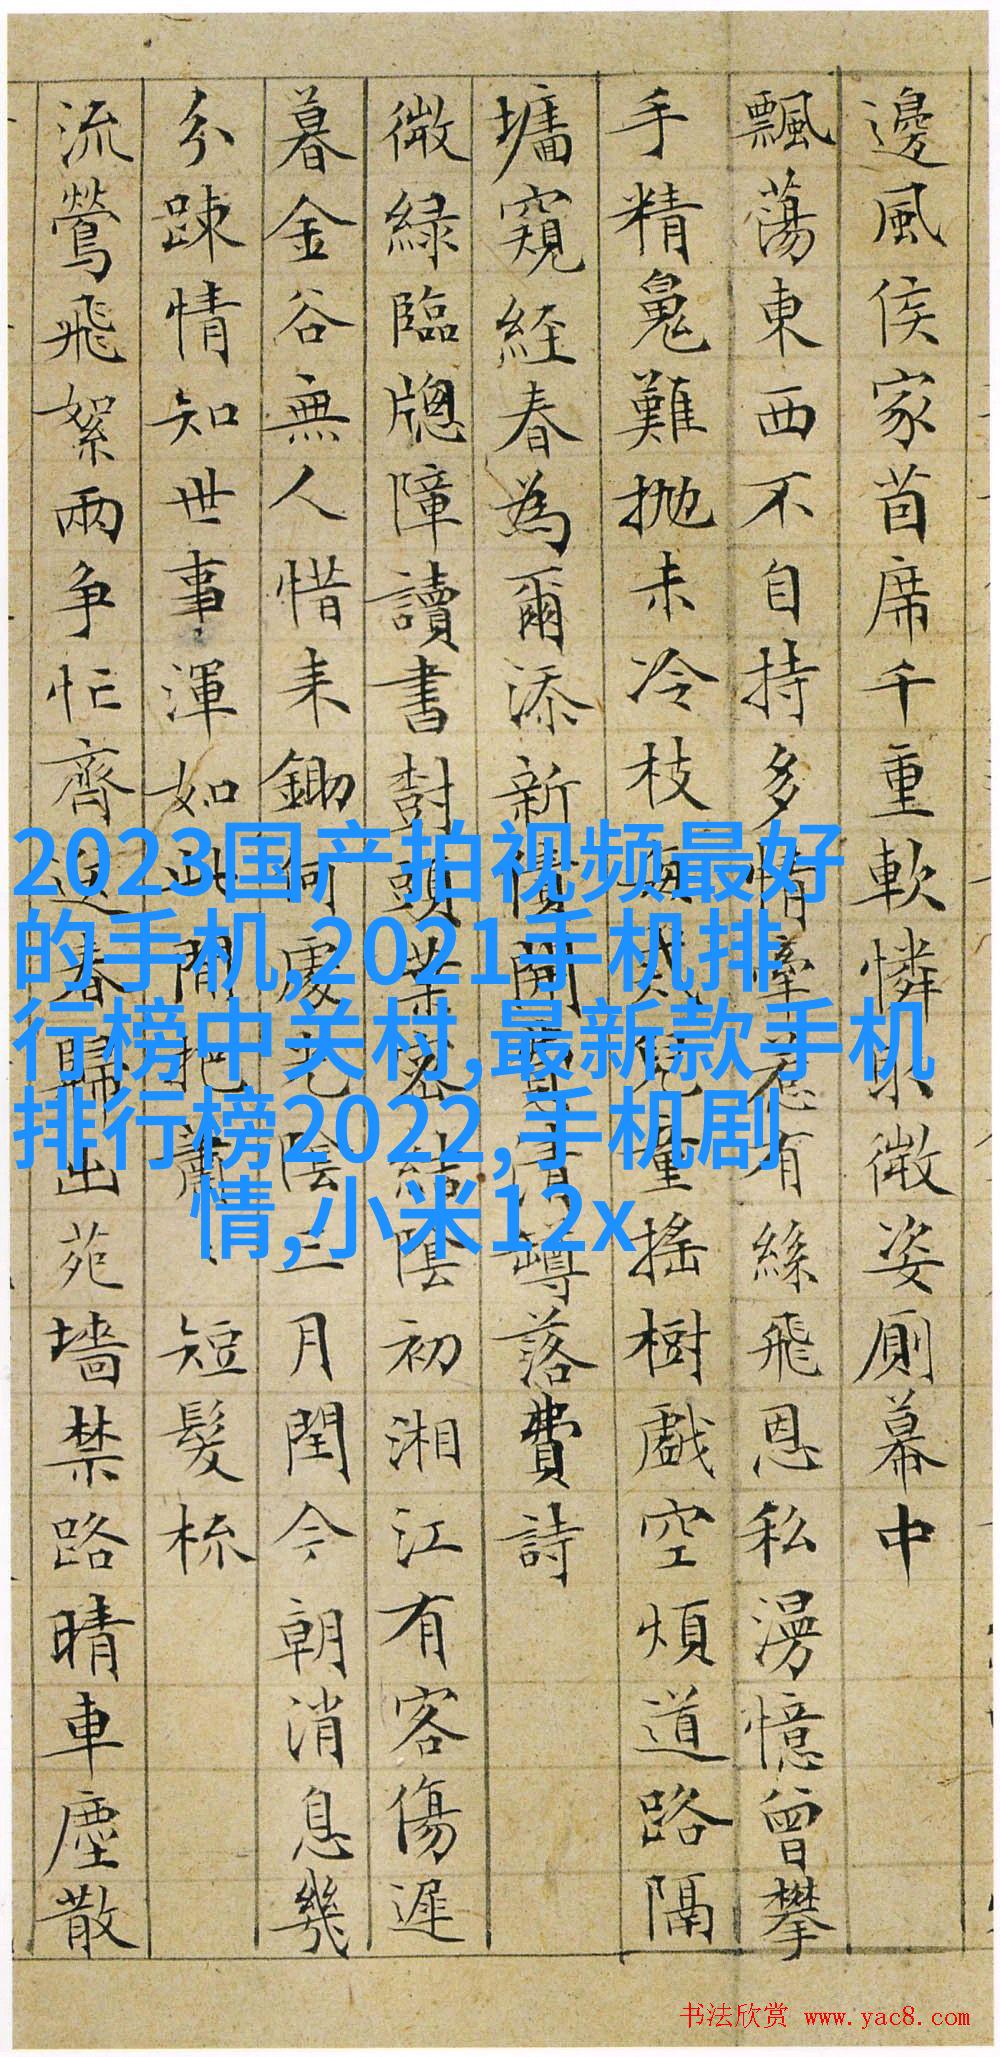 邊風侯家茵席千重軟憐微姿厠幕中
飄蕩東西不自持多情牽惹有絲飛恩私漫憶曾攀
手精魂難抛未冷枝兒童搖樹戲空煩道路隔
墉窺經春為爾添新債開清罇落費詩
微緑臨牕障讀書尌頭葉密結陰初湘江有客傷遲
暮金谷無人惜耒鋤何處光陰三月閏今朝消息幾
分踈情知世事渾如此閒把蕭〻短髮梳
流鶯飛絮兩爭忙齊送春歸出苑墻禁路晴車塵散
2023国产拍视频最好
的手机,2021手机排
行榜中关村,最新款手机
排行榜2022,手机剧
情,小米12x
书法欣赏 www.yac8.com